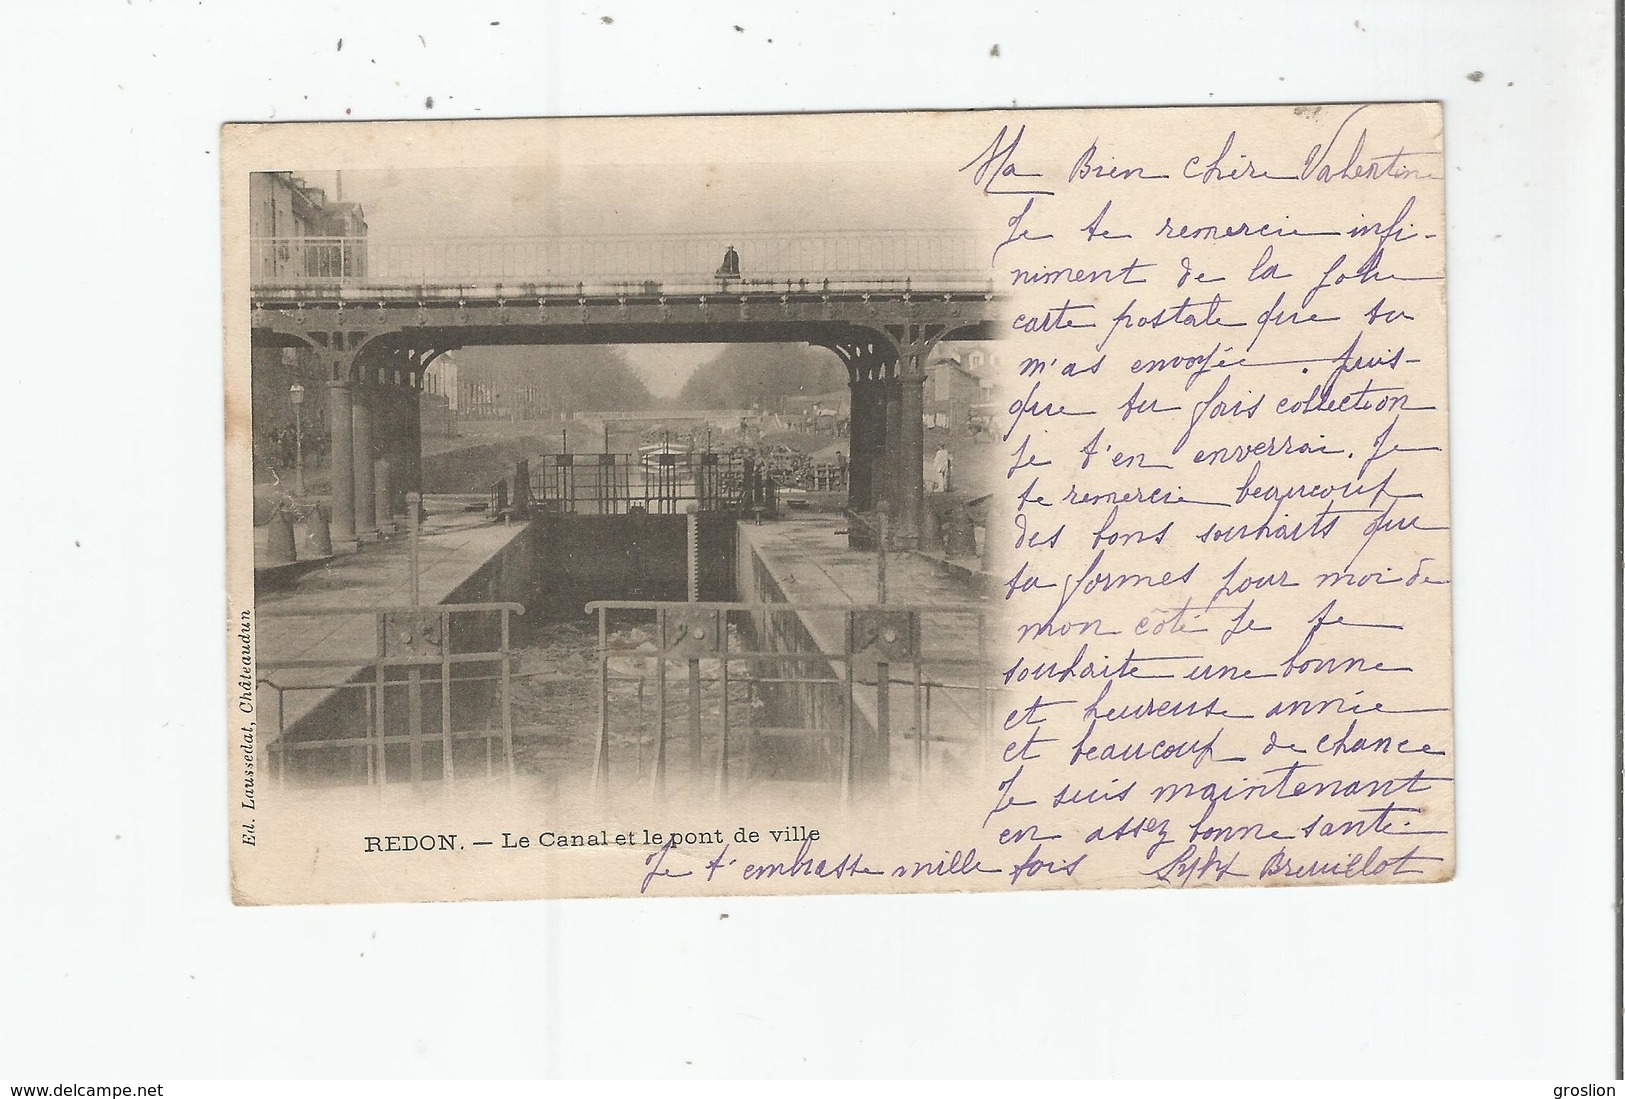 Ma Bien chère Valentine
Je te remercie infi-
niment de la jolie
carte postale que tu
m'as envoyée. puis-
que tu fais collection
je t'en enverrai. Je
te remercie beaucoup
des bons souhaits que
tu formes pour moi de
mon côté je te
souhaite une bonne
et heureuse année
et beaucoup de chance
Je suis maintenant
en assez bonne santé.
Je t'embrasse mille fois Breuillot
REDON. — Le Canal et le pont de ville
Ed. Laussedat, Châteaudun
https://www.delcampe.net
groslion